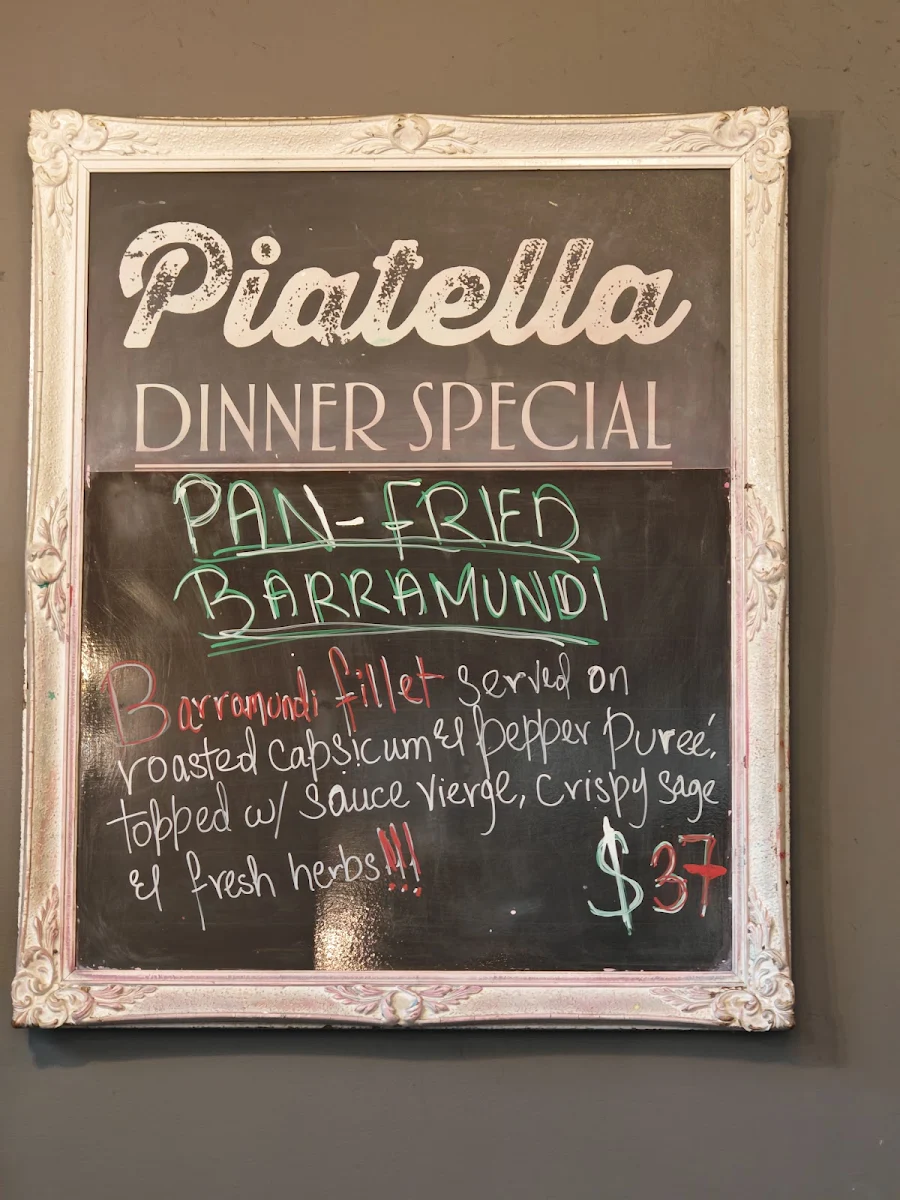 Piatella
DINNER SPECIAL
PAN-FRIED
BARRAMUNDI
Barramundi fillet served on
roasted capsicum & pepper pureé,
topped w/ sauce vierge, crispy sage
& fresh herbs!!!
$37